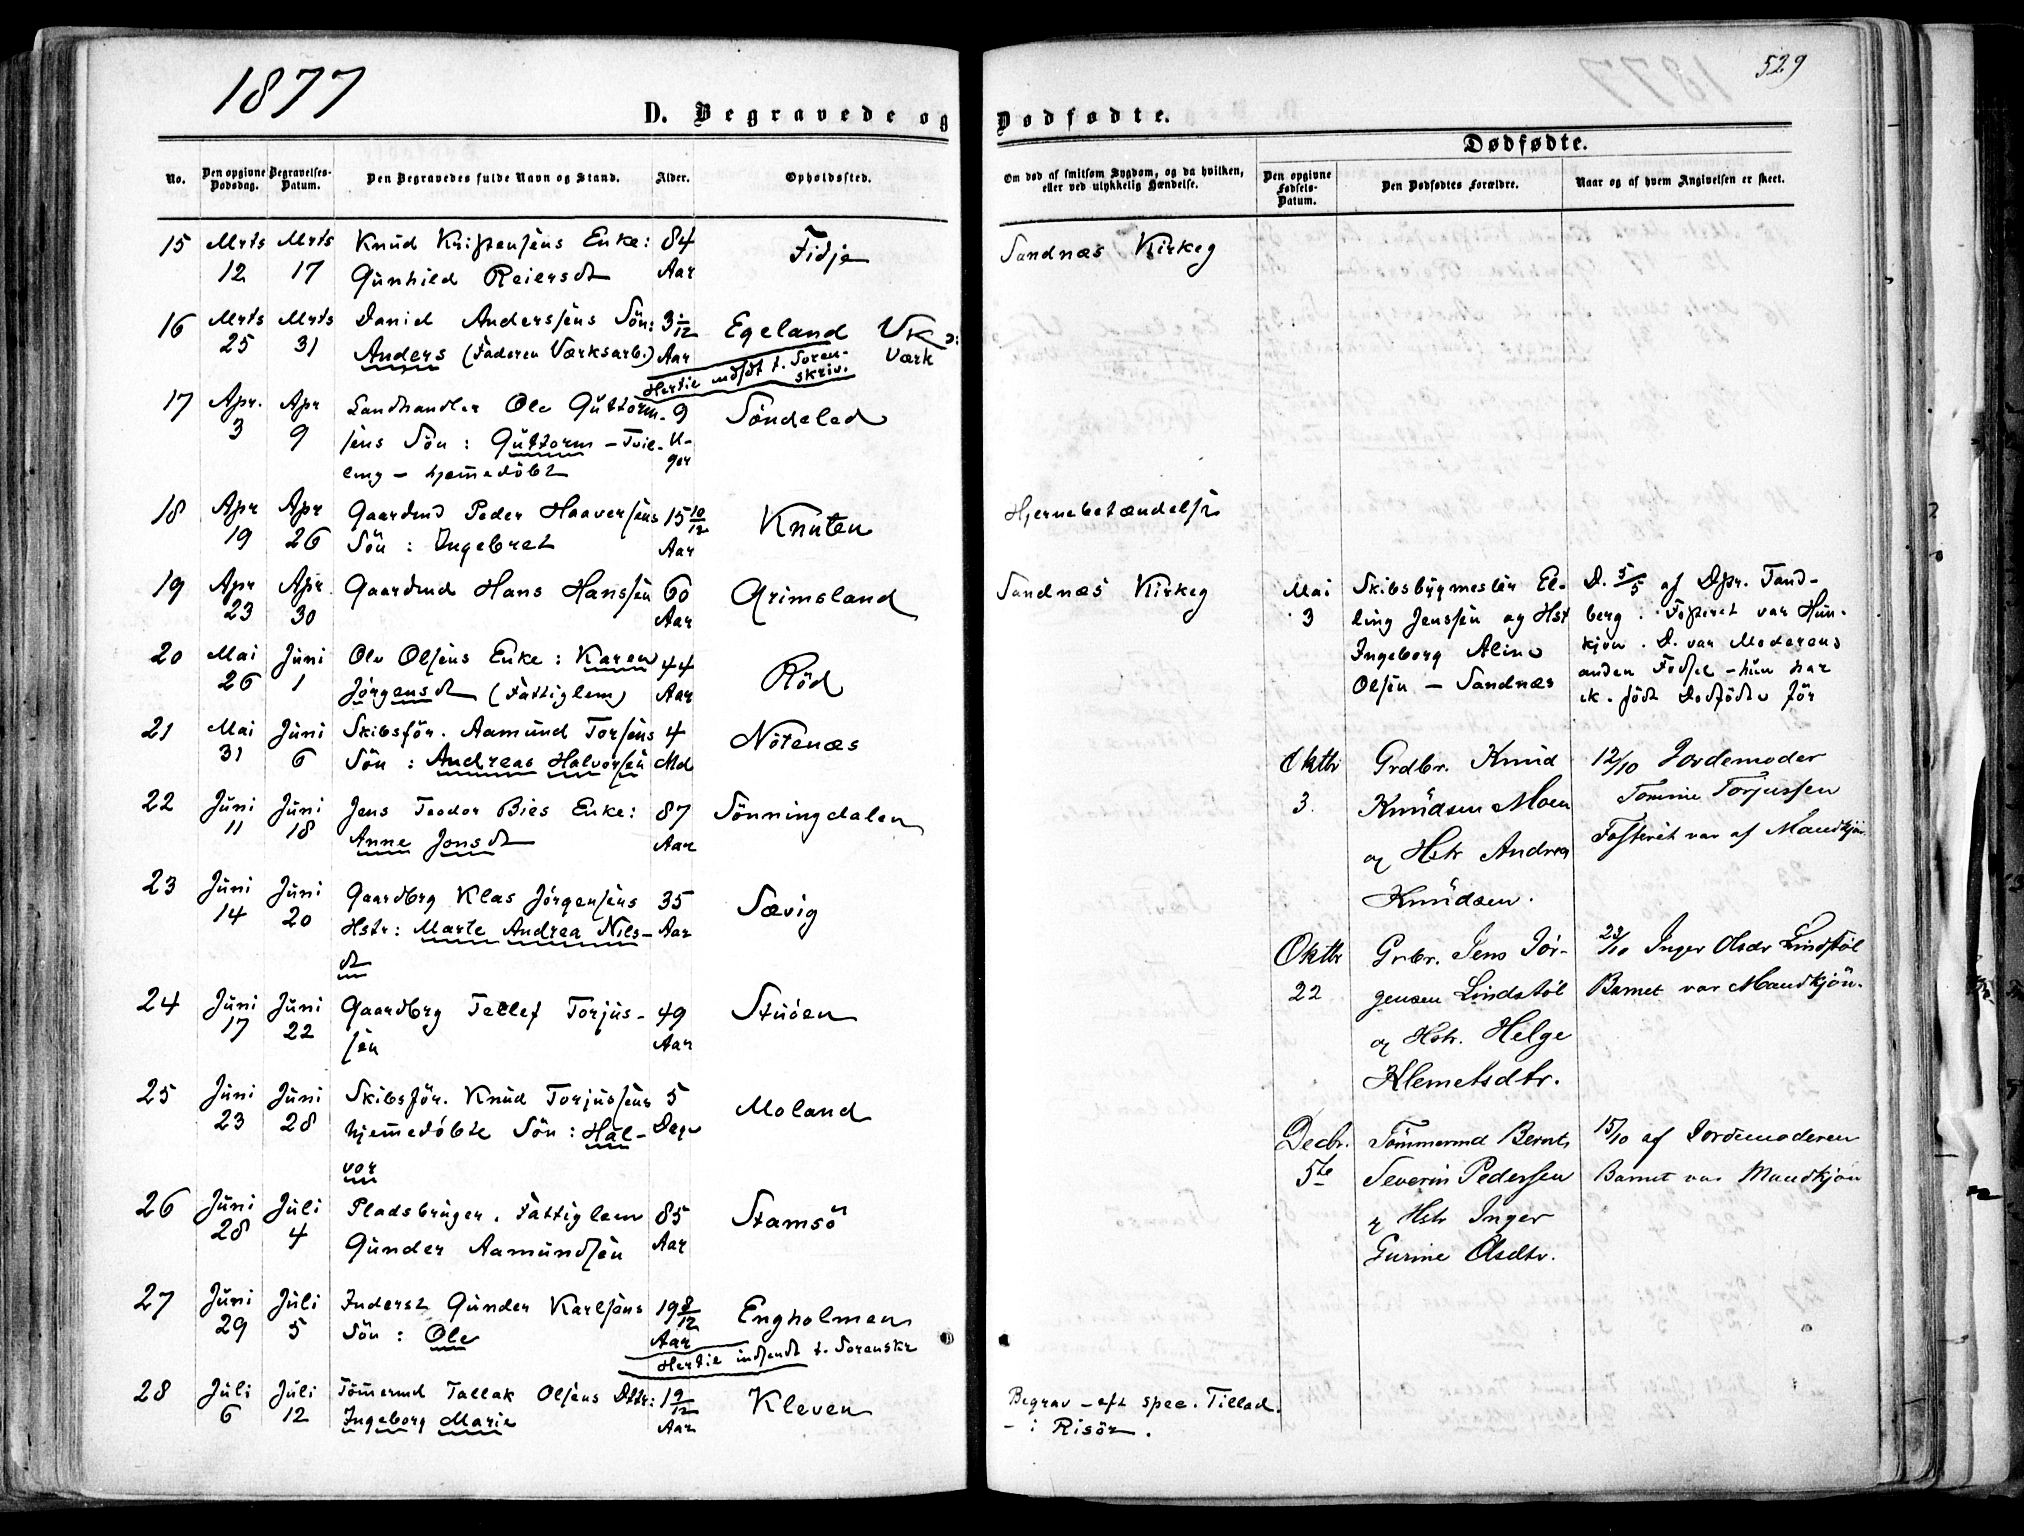 1877
529
D. Begravede og Dødfødte.
Dødfødte.
No. Den opgivne Dødsdag. Begravelses-Datum. Den Begravedes fulde Navn og Stand. Alder. Opholdssted.
Om død af smitsom Sygdom, og da hvilken, eller ved ulykkelig Hændelse. Den opgivne Fødsels-Datum. Den Dødfødtes Forældre. Naar og af hvem Angivelsen er skeet.
15 Mrts Mrts Knud Krispensens Enke: 84 Fidje Sandnæs Kirkeg
12 17 Gunhild Reiersdt Aar
16 Mrts Mrts Daniel Anderssens Søn: 3 1/12 Egeland Værk
25 31 Anders (Faderen Værksarb.) Aar
Hertil indsdt t. Soren-
skriv.
17 Apr. Apr Landhandler Ole Guttorm- 9 Søndeled
3 9 sens Søn: Guttorm – Tvil- U-
ling – hjemmedøbt ger
18 Apr Apr Gaardmd Peder Haaversens 15 10/12 Knuten Hjernebetændelse
19 26 Søn: Ingebret Aar
19 Apr Apr. Gaardmd Hans Hanssen 60 Grimsland Sandnæs Kirkeg
23 30 Aar
20 Mai Juni Ole Olsens Enke: Karen 44 Rød
26 1 Jørgensdt (Fattiglem) Aar
21 Mai Juni Skibsför. Aamund Torsens 4 Nötenæs
31 6 Søn: Andreas Halvorsen Md
22 Juni Juni Jens Teodor Bies Enke: 87 Sönningdalen
11 18 Anne Jonsdt Aar
23 Juni Juni Gaardbrg Klas Jörgensens 35 Sævig
14 20 Hstr: Marte Andrea Nils- Aar
dt
24 Juni Juni Gaardbrg Tellef Torjus- 49 Stuöen
17 22 sen Aar
25 Juni Juni Skibsför. Knud Torjussens 5 Moland
23 28 hjemmedöbte Sön: Hal- Dage
vor
26 Juni Juli Pladsbruger. Fattiglem 85 Stamsö
28 4 Gunder Aamundsen Aar
27 Juni Juli Inderst Gunder Karlsens 19 8/12 Engholmen
29 5 Sön: Ole Aar
Hertil indsendt t. Sorenskr
28 Juli Juli Tömmermd Tallak Olsens Dttr: 1 9/12 Kleven Begrav – eft spec. Tillad.
6 12 Ingeborg Marie Aar – i Risör.
Mai Skibsbygmester El- D. 5/5 af Dpr. Tand-
3 ling Jenssen og Hst berg. Fosteret var Hun-
Ingeborg Aline kjön. D. var Moderens
Olsen – Sandnæs anden Fødsel – hun har
ik. födt Dødfödte før
Oktbr Grdbr. Knud 12/10 Jordemoder
3. Knudsen Moen Tomine Torjussen
og Hstr Andrea Fosteret var af Mandkjön.
Knudsen.
Oktbr Grbr. Jens Jör- 23/10 Inger Olsdr Lindstöl
22 gensen Lindstöl Barnet var Mandkjön.
og Hstr. Helge
Klemetsdtr.
Decbr. Tömmermd Bernt 15/10 af Jordemoderen
5te Severin Pedersen Barnet var Mandkjön
og Hstr Inger
Gurine Olsdtr.